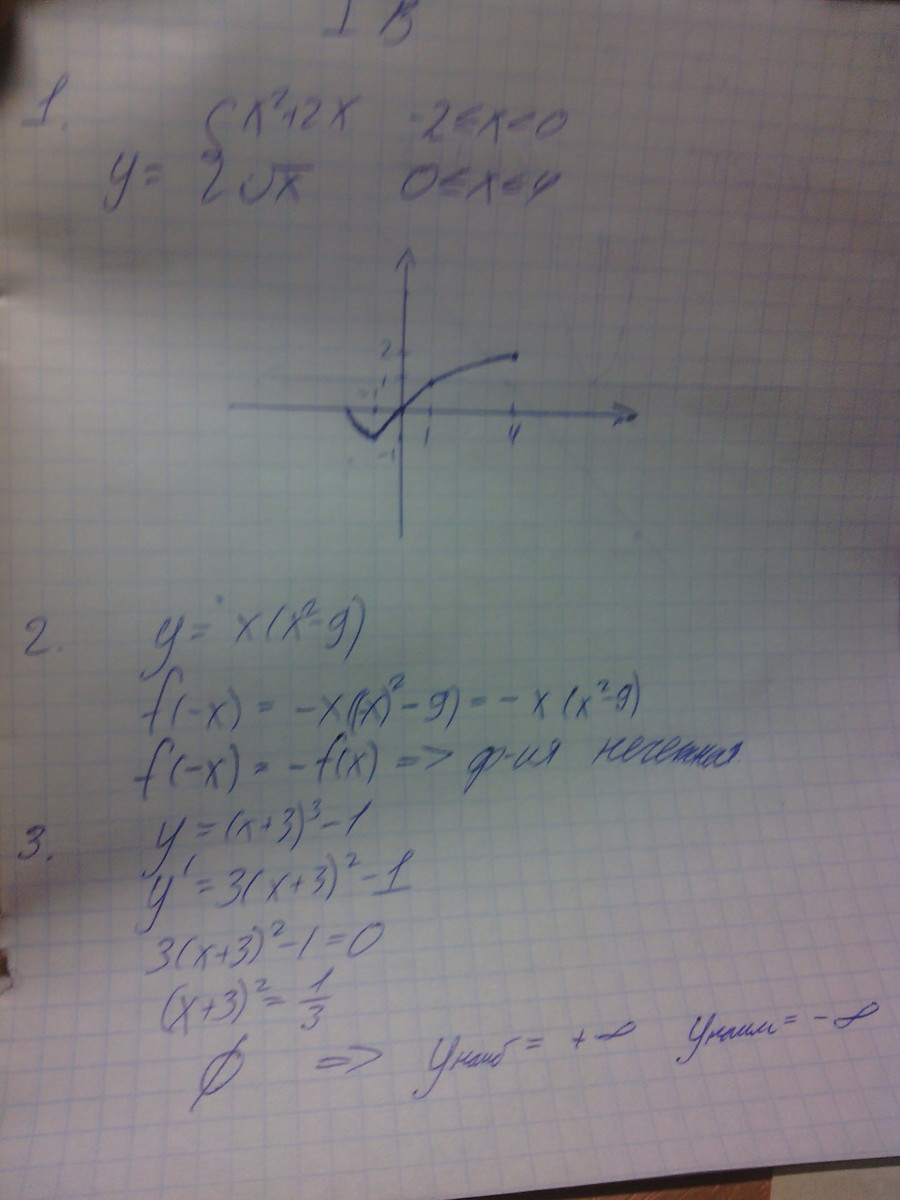 I В
1.
y = { x²+2x -2≤x<0
√x 0≤x≤4
2
1
-1
1
4
2. y = x(x²-9)
f(-x) = -x((-x)²-9) = -x(x²-9)
f(-x) = -f(x) => ф-ия нечетная
3. y = (x+3)³-1
y' = 3(x+3)²-1
3(x+3)²-1=0
(x+3)² = 1/3
∅ => yнаиб = +∞ yнаим = -∞